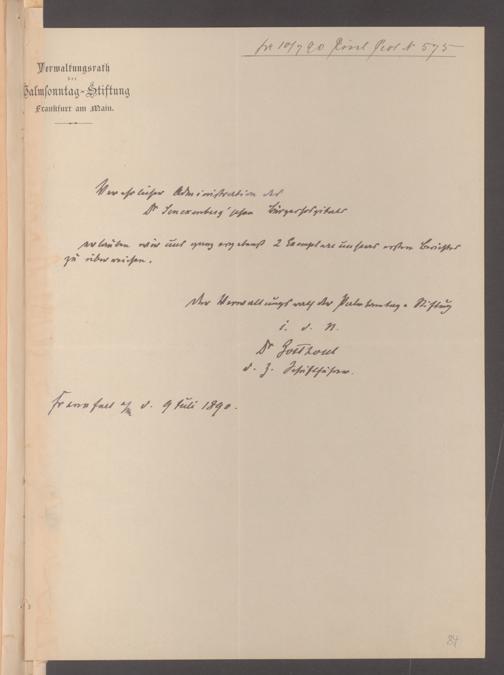 pr 10/7 90 Prot N 575
Verwaltungsrath
der
Palmsonntag-Stiftung
Frankfurt am Main.
Verehrlicher Administration des
Dr Senckenberg'schen Bürgerhospitals
erlauben wir uns ganz ergebenst 2 Exemplare unseres ersten Berichtes
zu überreichen.
Der Verwaltungsrath der Palmsonntag-Stiftung
i. d. N.
Dr
d. Z. Schriftführer.
Frankfurt a/M d. 9 Juli 1890.
84